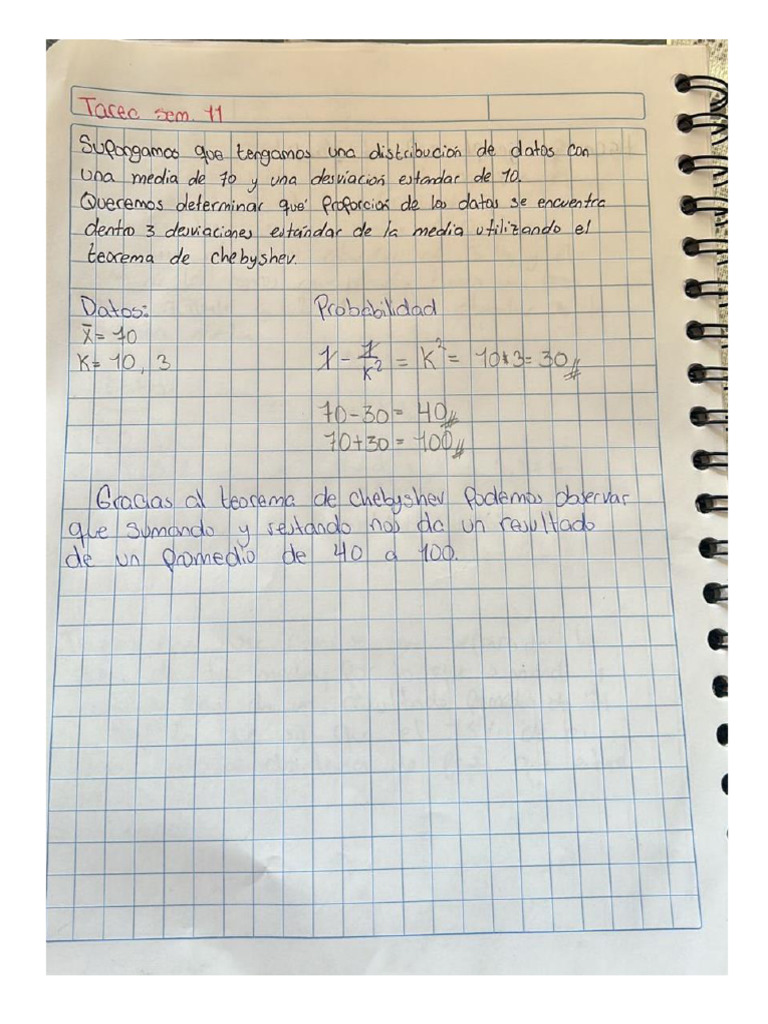 Tarea sem. 11
Supongamos que tengamos una distribución de datos con
una media de 70 y una desviación estandar de 10.
Queremos determinar qué proporción de los datos se encuentra
dentro 3 desviaciones estándar de la media utilizando el
teorema de chebyshev.
Datos:
Probabilidad
x̄= 70
K= 10, 3
1 - 1/K² = K² = 10*3= 30
70-30= 40
70+30= 100
Gracias al teorema de chebyshev Podemos observar
que sumando y restando nos da un resultado
de un promedio de 40 a 100.